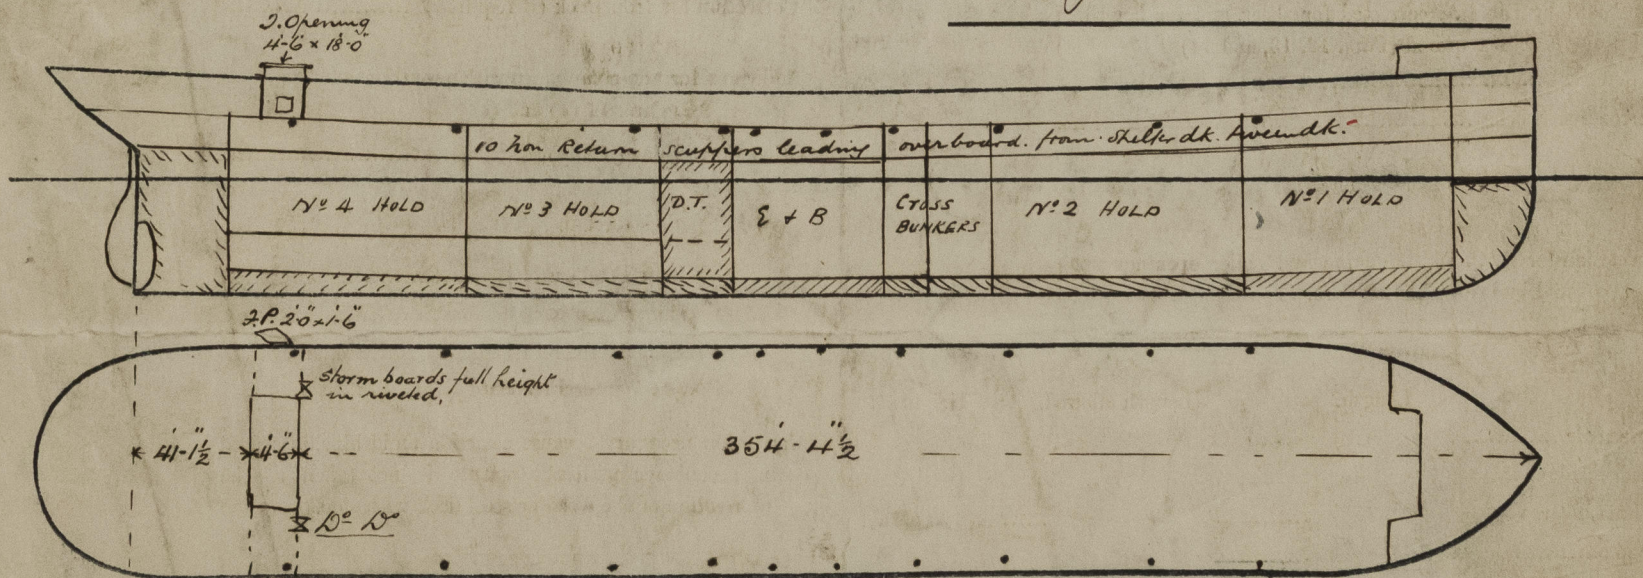 T. Opening
4'-6" x 18'-0"
10 Non Return scuppers leading overboard. from Shelter dk. tweendk.
No 4 HOLD
No 3 HOLD
D.T.
E & B
CROSS
BUNKERS
No 2 HOLD
No 1 HOLD
F.P. 2'-0" x 1'-6"
Storm boards full height
in riveted,
41'-1½"
4'-6"
354'-4½"
Do Do